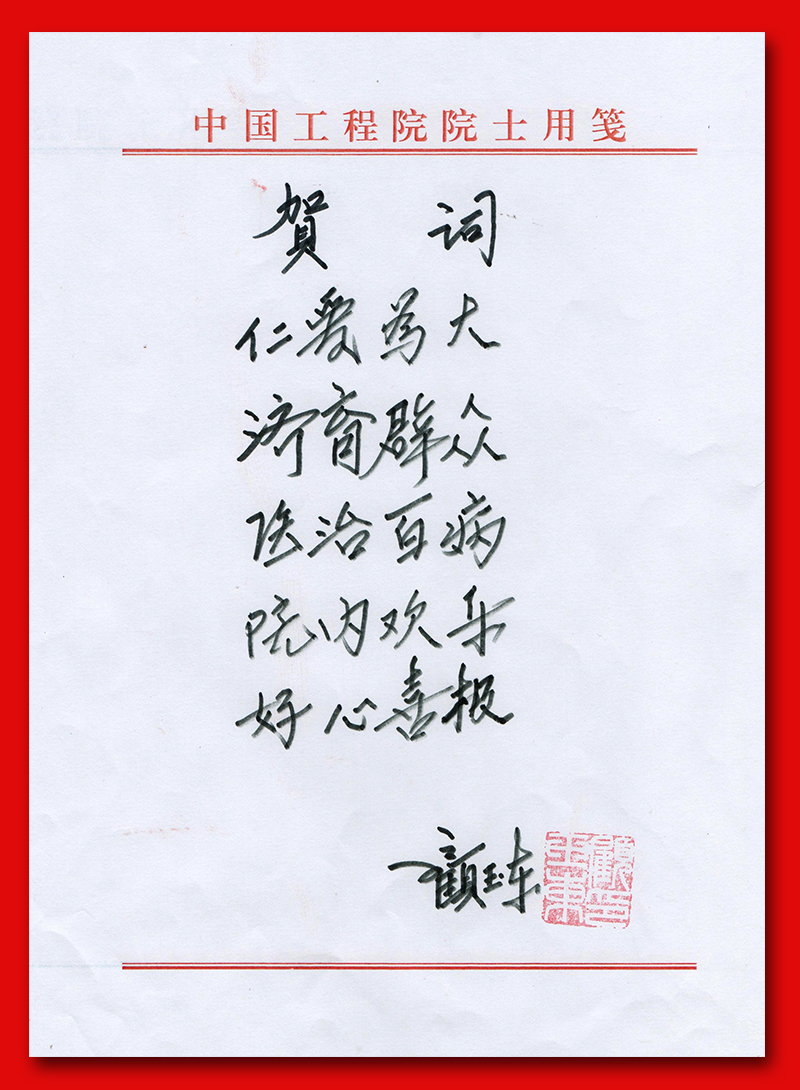 中国工程院院士用笺
賀 词
仁爱为大
济育群众
医治百病
院内欢乐
好心喜报
顾玉东